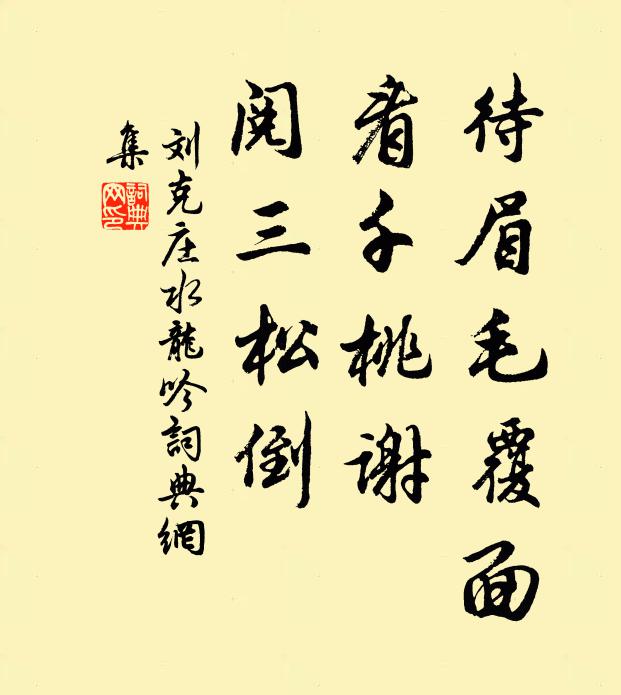 待眉毛覆面
看千桃谢
阅三松倒
刘克庄水龍吟詞典網
集
詞典
网印